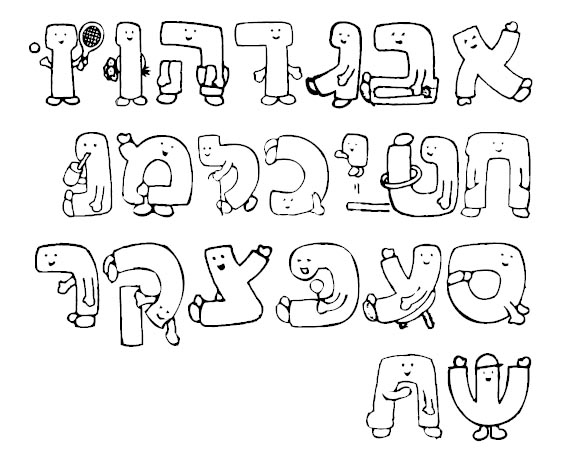 אבגדהוז
חטיכלמנ
סעפצקר
שת